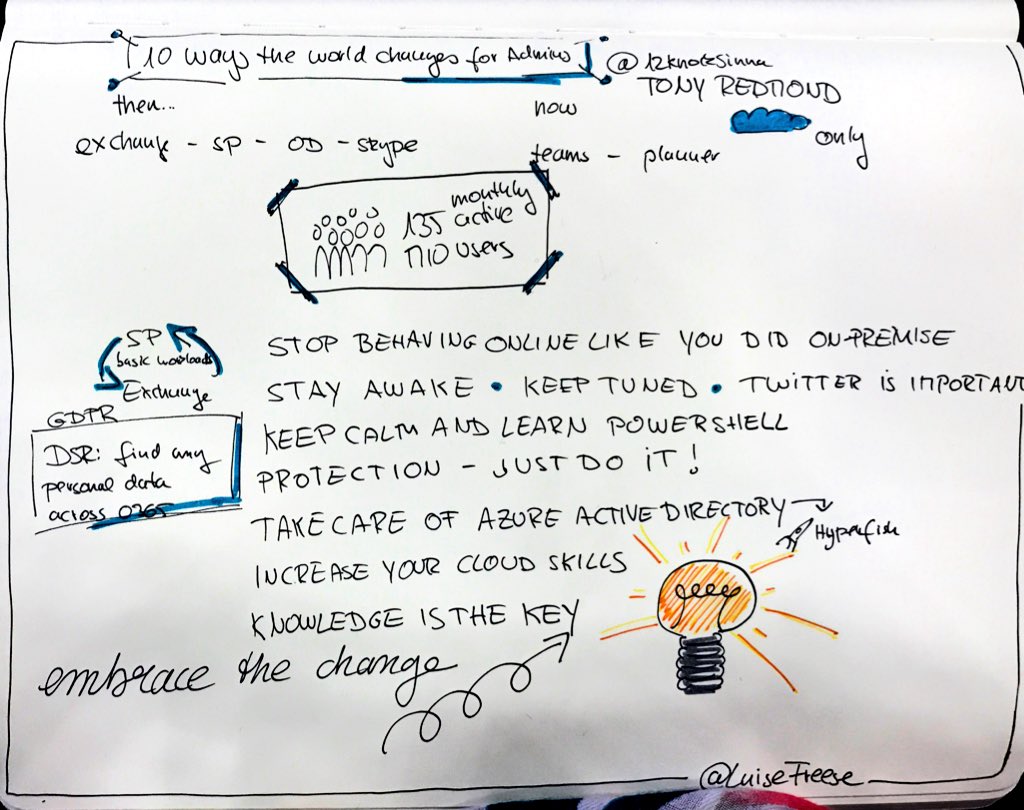 10 ways the world changes for Admins
@12knotsinna
TONY REDMOND
then...
now
only
exchange - SP - OD - skype
teams - planner
monthly
135 active
MIO users
SP
basic workloads
Exchange
GDPR
DSR: find any
personal data
across O365
STOP BEHAVING ONLINE LIKE YOU DID ON-PREMISE
STAY AWAKE • KEEP TUNED • TWITTER IS IMPORTANT
KEEP CALM AND LEARN POWERSHELL
PROTECTION - JUST DO IT!
TAKE CARE OF AZURE ACTIVE DIRECTORY →
Hyperfish
INCREASE YOUR CLOUD SKILLS
KNOWLEDGE IS THE KEY
embrace the change
@LuiseFreese